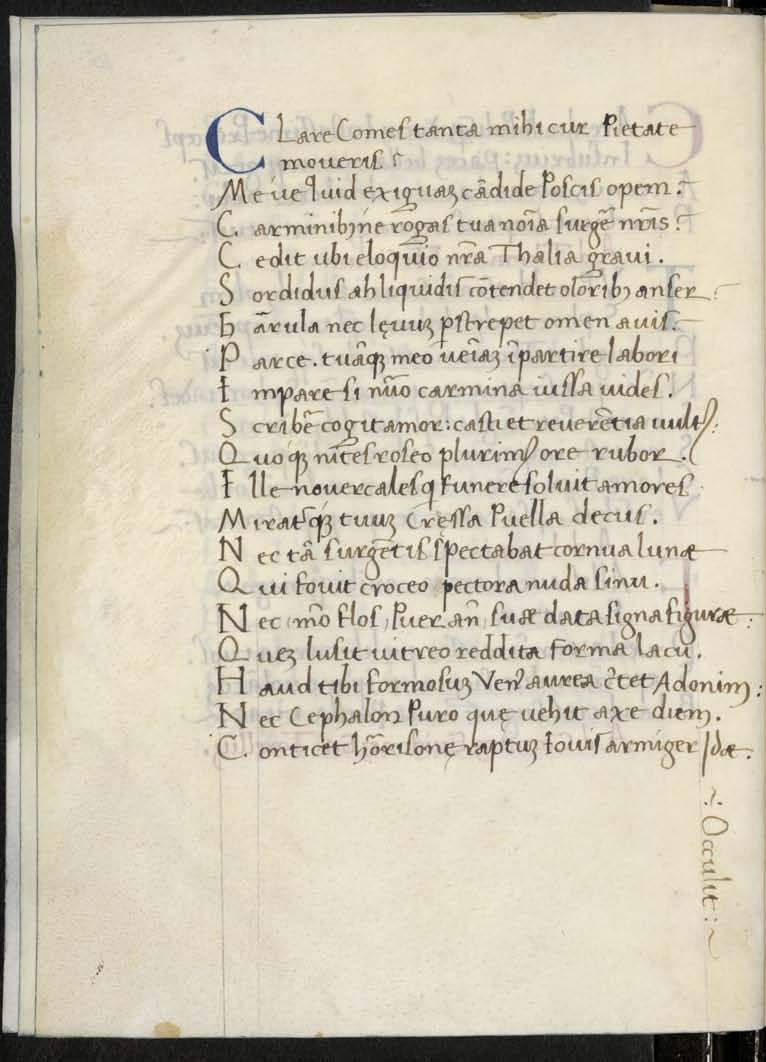 CLare Comeſ tanta mihi cur Pietate
moueriſ ?
Me ue quid exiguaꝫ cãdide Poſciſ opem ?
C. arminibꝫ ne rõgaſ tua noĩa ſurgẽ nr̃is ?
C. edit ubi eloquio nr̃a Thalia graui .
S ordiduſ ah liquidiſ cõtendet olõribꝫ anſer ?
H ãrula nec lęuuꝫ pſtrepet omen auiſ ?
P arce . tuãqꝫ meo ueĩaꝫ ĩpartire labori
I mpare ſi nũo carmina iuſſa uideſ .
S cribẽ cogit amor : caſti et reuerẽtia uult9 :
Q uo qꝫ niteſ roſeo plurim9 ore rubor .
I lle nouercaleſ q funere ſoluit amoreſ
M irat qꝫ tuuꝫ Creſſa Puella decuſ .
N ec tã ſurgẽtiſ ſpectabat cornua lunæ
Q ui fouit croceo pectora nuda ſinu .
N ec mo͂ floſ, Puer an̄, ſuæ data ſigna figuræ :
Q ueꝫ luſit uitreo reddita forma lacu .
H aud tibi formoſuꝫ Ven9 aurea c̃tet Adonim :
N ec Cephalon Puro quę uehit axe diem .
C. onticet hõriſonę raptuꝫ Iouiſ armiger Idæ .
Occulit :~